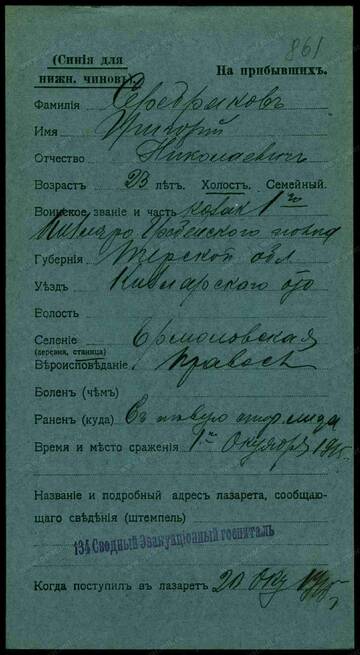 861
(Синія для
нижн. чиновъ).
На прибывшихъ.
Фамилія Серебряковъ
Имя Григорій
Отчество Николаевич
Возрастъ 23 лѣтъ. Холостъ. Семейный.
Воинское званіе и часть козак 1го
Кизляро Гребенского полка
Губернія Терской обл
Уѣздъ Кизлярскаго отд
Волость
Селеніе Ермоловская
(деревня, станица)
Вѣроисповѣданіе Правосл
Боленъ (чѣмъ)
Раненъ (куда) Въ левую стор. лица
Время и мѣсто сраженія 1го Октября 1915г.
Названіе и подробный адресъ лазарета, сообщаю-
щаго свѣдѣнія (штемпель)
134 Сводный Эвакуаціонный госпиталь
Когда поступилъ въ лазаретъ 20 Окт 1915г